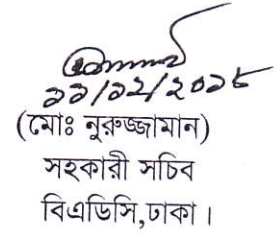 ১১/১২/২০১৮
(মোঃ নুরুজ্জামান)
সহকারী সচিব
বিএডিসি,ঢাকা।